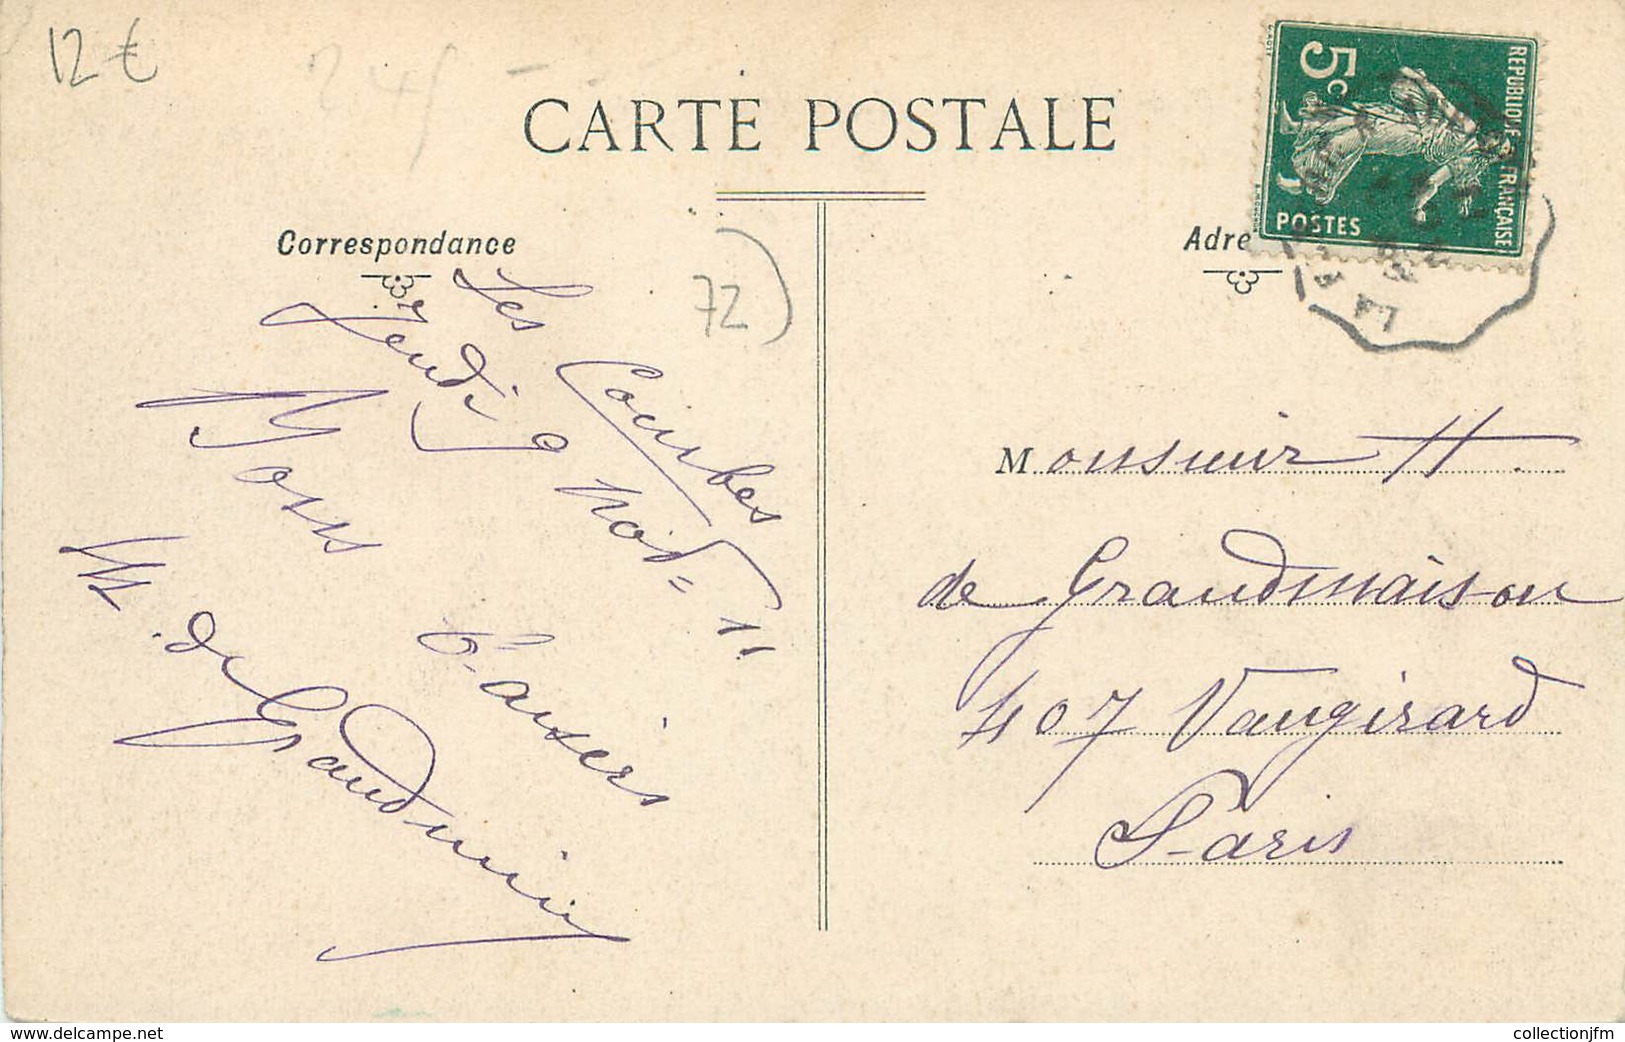 12 €
CARTE POSTALE
Correspondance
Adre
5c
POSTES
REPUBLIQUE FRANÇAISE
LA
72
Les Courbes
Jeudi 9 Nov= 11
Bons Baisers
M. de Grandmaison
Monsieur H.
de Grandmaison
407 Vaugirard
Paris
www.delcampe.net
collectionjfm